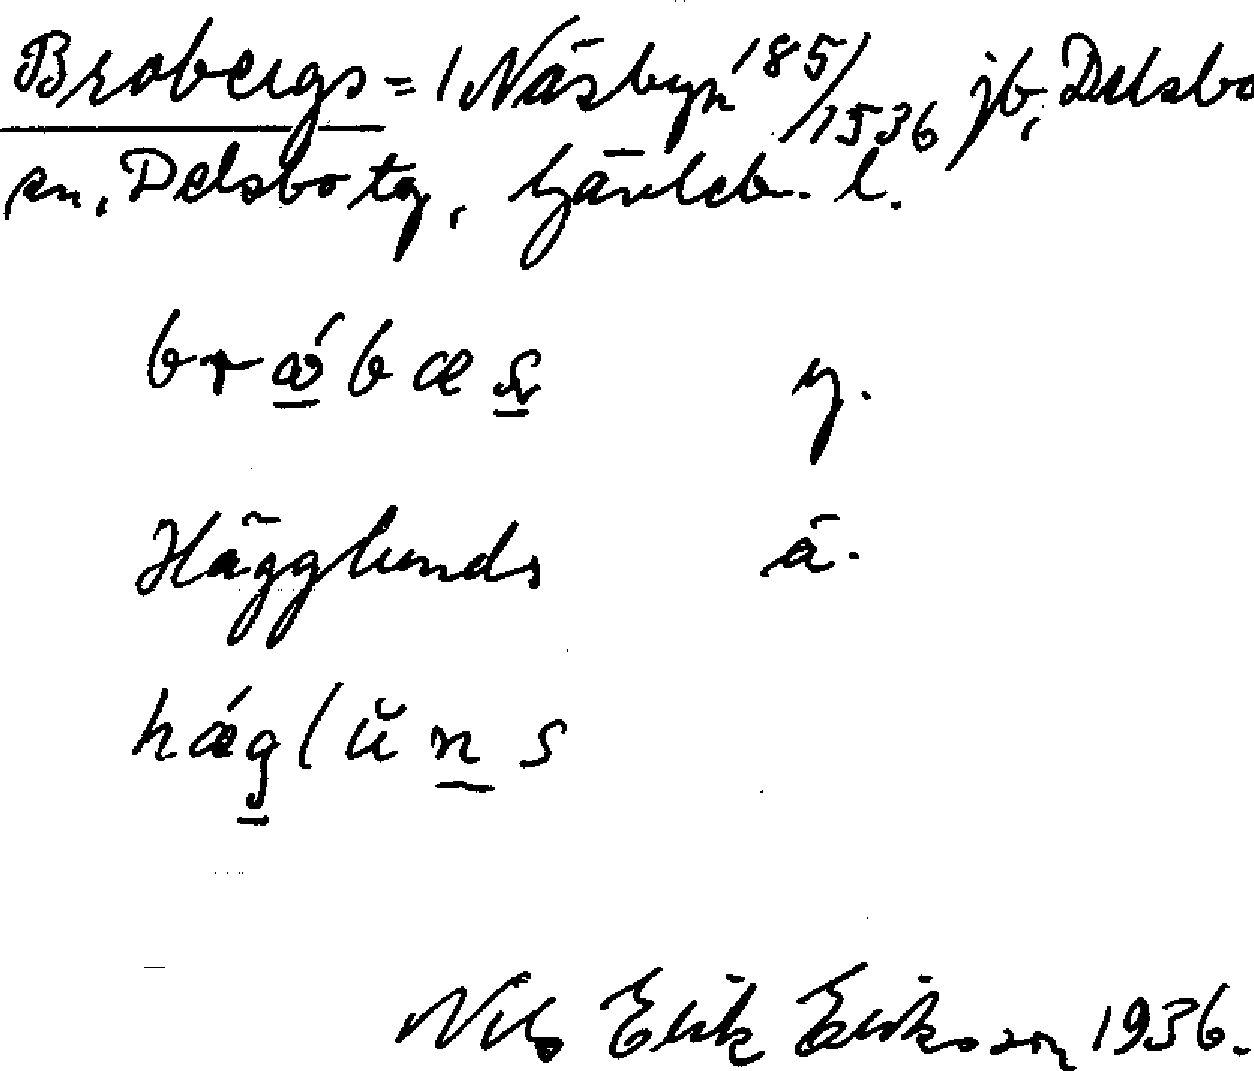 Brobergs = i Näsbyn 185/1536 jb, Delsbo
sn, Delsbo tg, Gävleb. l.
brǽbæs y.
Hägglunds ä.
hǽglŭns
Nils Erik Eriksson 1936.